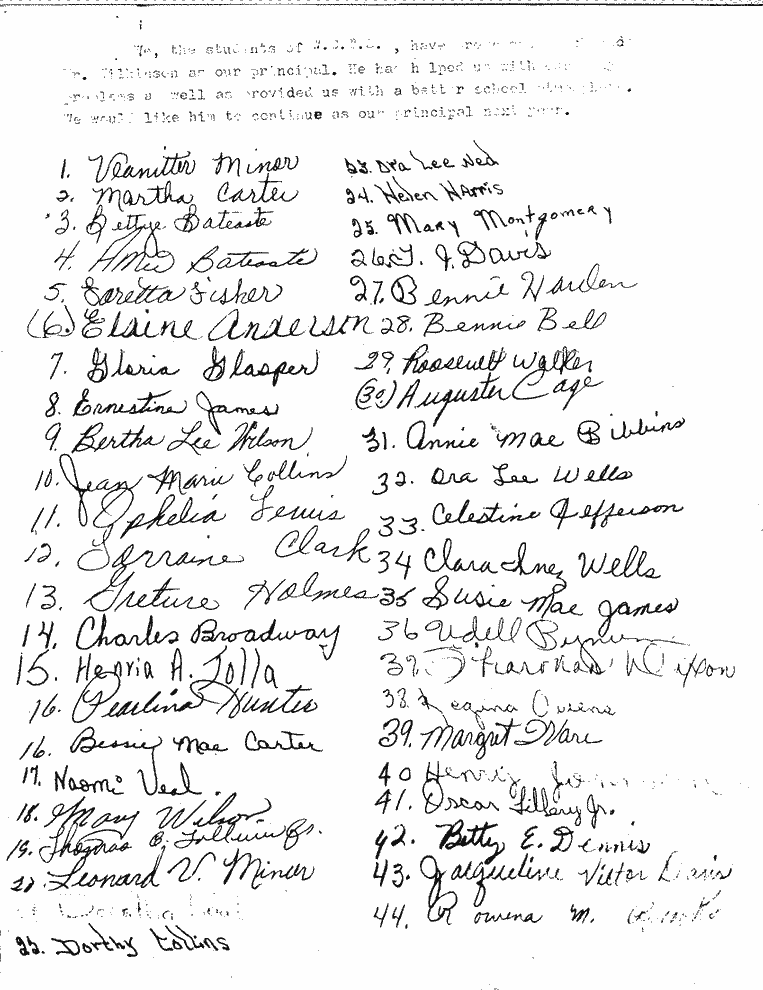 We, the students of , have
Mr. Wilkinson as our principal. He has helped us with
problems as well as provided us with a better school
We would like him to continue as our principal next year.
1. Veanitter Minor
2. Martha Carter
3. Bettye Bateaste
4. Bateaste
5. Loretta Fisher
(6.) Elaine Anderson
7. Gloria Glasper
8. Ernestine James
9. Bertha Lee Wilson
10. Jean Marie Collins
11. Ophelia Lewis
12. Lorraine Clark
13. Holmes
14. Charles Broadway
15. Henria A. Tolla
16. Pearlina Hunter
16. Bessie Mae Carter
17. Naomi Veal.
18. Mary Wilson
19. Thomas B. Jr.
20. Leonard V. Minor
22. Dorthy Collins
23. Ora Lee Ned
24. Helen Harris
25. Mary Montgomery
26. J. Davis
27. Bennie Harden
28. Bennie Bell
29. Roosevelt Walker
(30) Auguster Cage
31. Annie Mae Bibbins
32. Ora Lee Wells
33. Celestine Jefferson
34 Clara Inez Wells
35 Susie Mae James
36 Udell Bynum
37. Dixon
38. Regina Owens
39. Margret Ware
40 Henry
41. Oscar Jr.
42. Betty E. Dennis
43. Jacqueline Victor Davis
44. Rowena M.